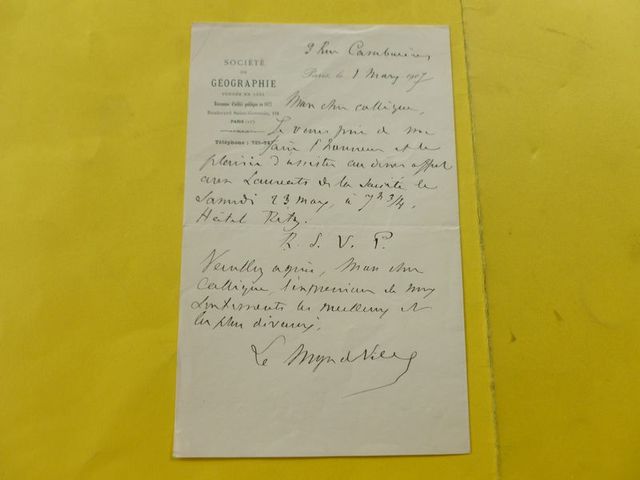 SOCIÉTÉ
DE
GÉOGRAPHIE
FONDÉE EN 1821
Reconnue d'utilité publique en 1827
Boulevard Saint-Germain, 184
PARIS (VIe)
Téléphone :
9 Rue
Paris, le 1 Mars 1907
Mon cher collègue,
Je vous prie de me
faire l'honneur et le
plaisir d'assister au dîner offert
aux Laureats de la Société le
Samedi 23 mars, à 7h 3/4,
Hôtel Ritz.
R. S. V. P.
Veuillez agréer, Mon cher
Collègue, l'expression de mes
Sentiments les meilleurs et
les plus
Le Myre de Vilers